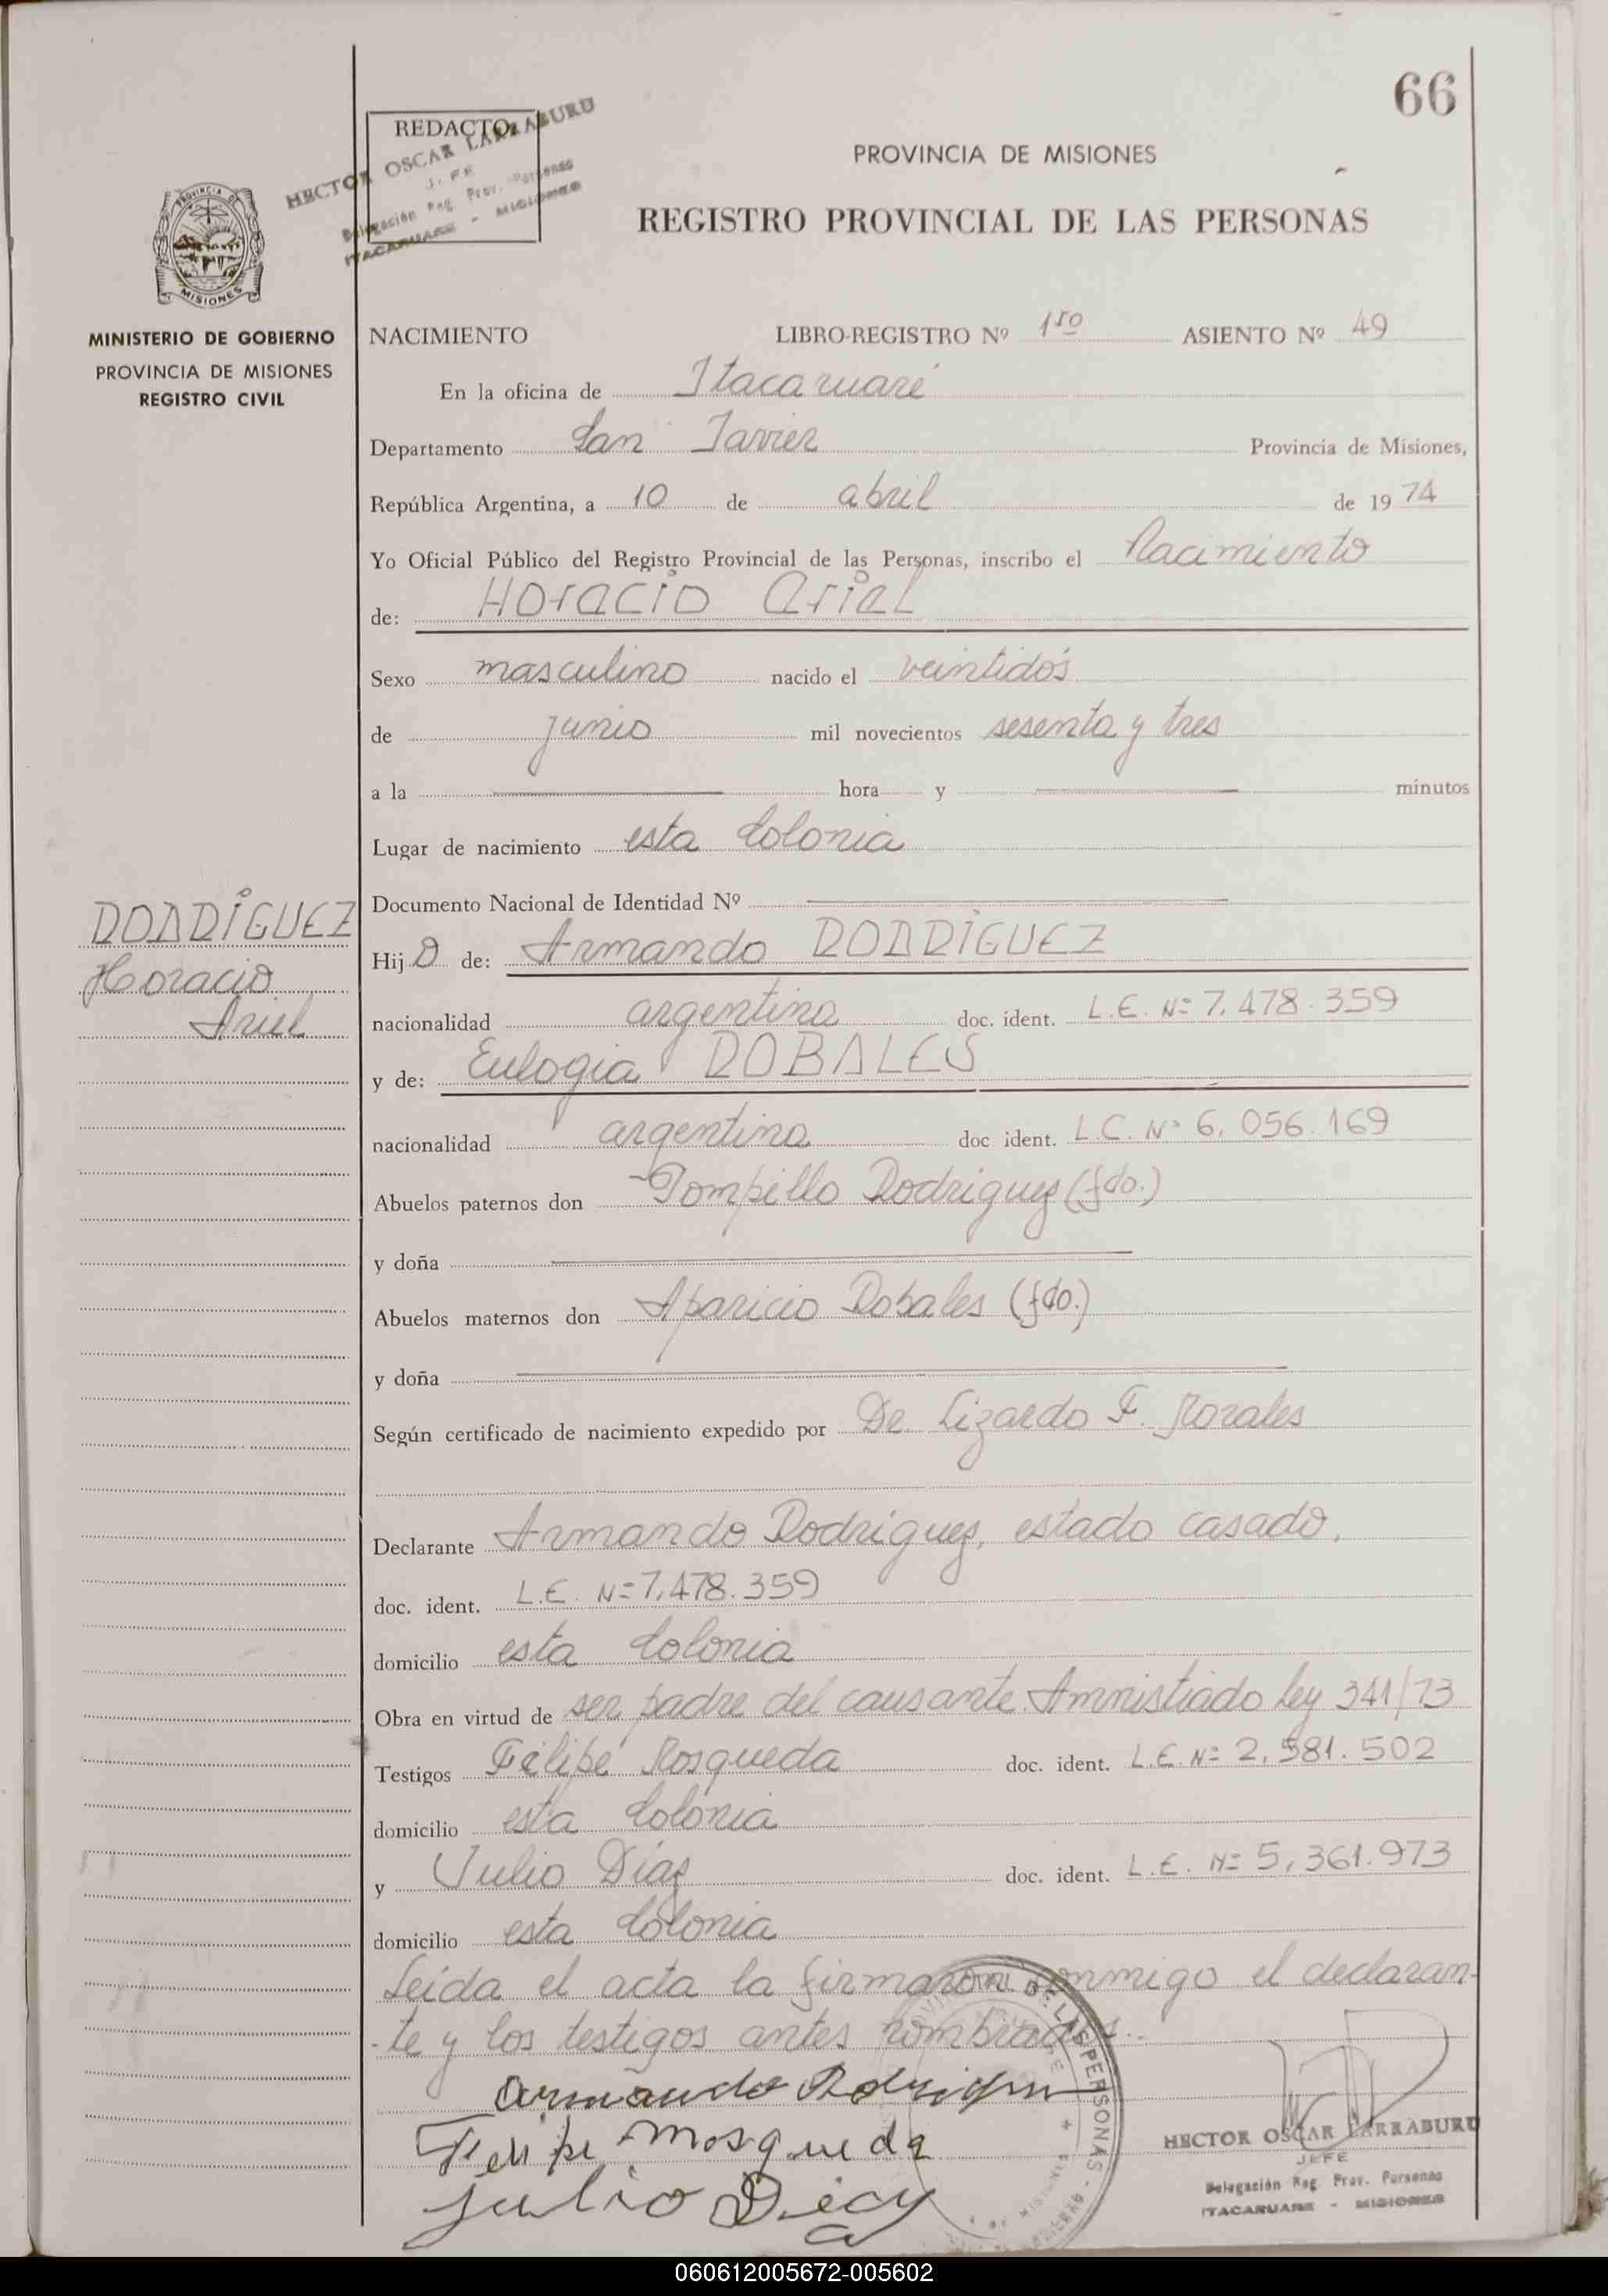 66
REDACTO
HECTOR OSCAR LARRABURU
JEFE
Delegación Reg. Prov. Personas
ITACARUARE - MISIONES
PROVINCIA DE MISIONES
REGISTRO PROVINCIAL DE LAS PERSONAS
PROVINCIA DE
MISIONES
MINISTERIO DE GOBIERNO
PROVINCIA DE MISIONES
REGISTRO CIVIL
NACIMIENTO LIBRO-REGISTRO Nº 1ro ASIENTO Nº 49
En la oficina de Itacaruaré
Departamento San Javier Provincia de Misiones,
República Argentina, a 10 de abril de 1974
Yo Oficial Público del Registro Provincial de las Personas, inscribo el Nacimiento
de: Horacio Ariel
Sexo masculino nacido el veintidós
de junio mil novecientos sesenta y tres
a la hora y minutos
Lugar de nacimiento esta Colonia
Documento Nacional de Identidad Nº
RODRÍGUEZ
Horacio
Ariel
Hijo de: Armando RODRÍGUEZ
nacionalidad argentina doc. ident. L.E. Nº 7.478.359
y de: Eulogia ROBALES
nacionalidad argentina doc ident. L.C. Nº 6.056.169
Abuelos paternos don Pompillo Rodriguez (fdo.)
y doña
Abuelos maternos don Aparicio Robales (fdo.)
y doña
Según certificado de nacimiento expedido por Dr. Lizardo F. Morales
Declarante Armando Rodriguez, estado casado,
doc. ident. L.E. Nº 7.478.359
domicilio esta Colonia
Obra en virtud de ser padre del causante. Amnistiado Ley 341/73
Testigos Felipe Mosqueda doc. ident. L.E. Nº 2.581.502
domicilio esta Colonia
y Julio Díaz doc. ident. L.E. Nº 5.361.973
domicilio esta Colonia
Leída el acta la firmaron conmigo el declaran-
-te y los testigos antes nombrados.
Armando Rodrigue
Felipe Mosqueda
Julio Diaz
DE LAS PERSONAS
HECTOR OSCAR LARRABURU
JEFE
Delegación Reg. Prov. Personas
ITACARUARE - MISIONES
060612005672-005602